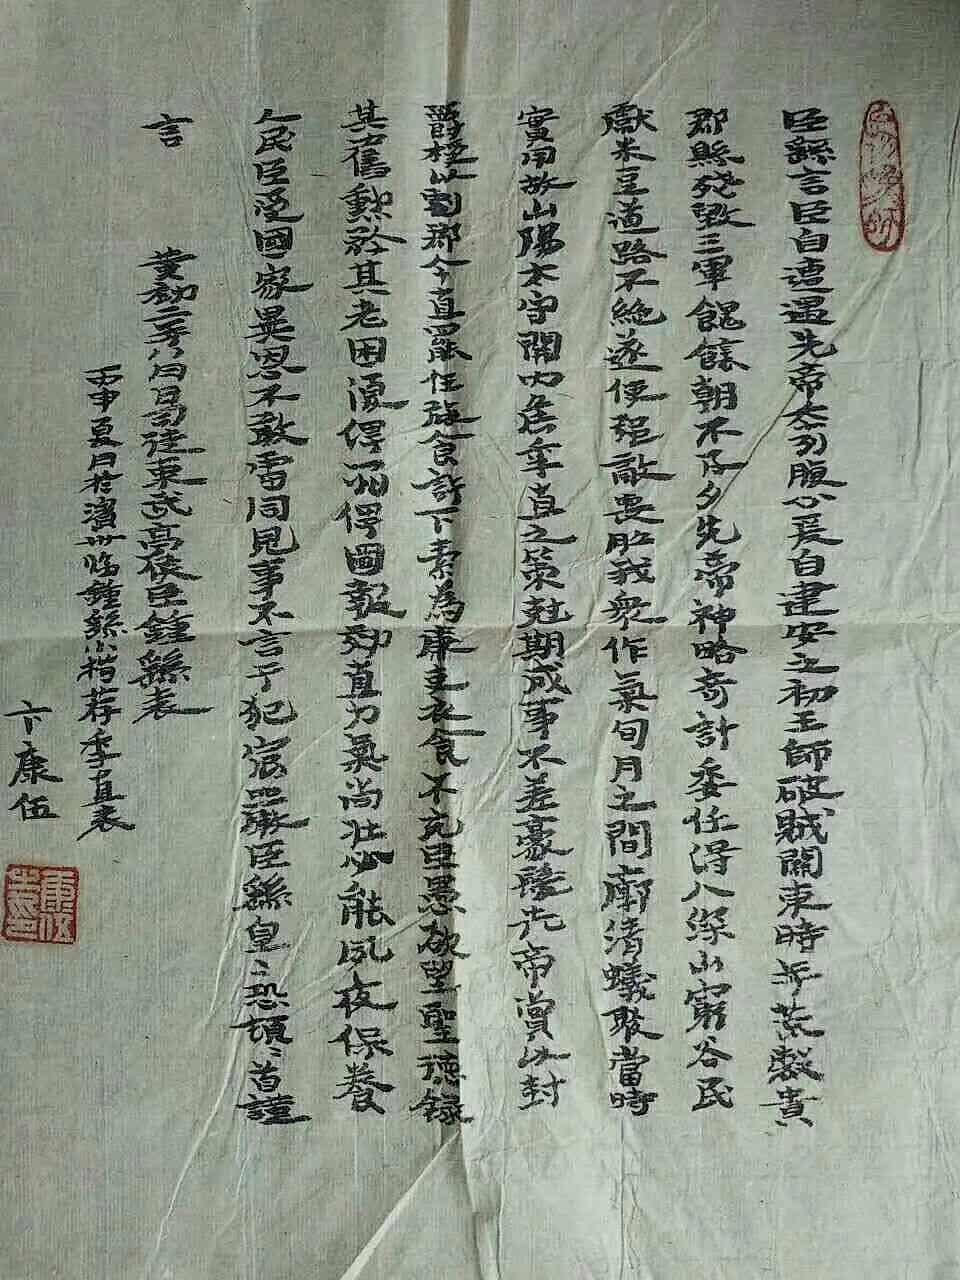 臣繇言臣自遭遇先帝忝列腹心爰自建安之初王師破賊關東時年荒穀貴
郡縣殘毀三軍餽饟朝不及夕先帝神略奇計委任得人深山窮谷民
獻米豆道路不絕遂使强敵喪膽我衆作氣旬月之間廓清蟻聚當時
實用故山陽太守關內侯季直之策尅期成事不差豪髮先帝賞以封
爵授以劇郡今直罷任旅食許下素為廉吏衣食不充臣愚欲望聖德錄
其舊勳矜其老困復俾一州俾圖報效直力氣尚壯必能夙夜保養
人民臣受國家異恩不敢雷同見事不言干犯宸嚴臣繇皇ミ恐頓ミ首謹
言
黄初二年八月日司徒東武亭侯臣鍾繇表
丙申夏月於濱州臨鍾繇小楷荐季直表
卞康伍